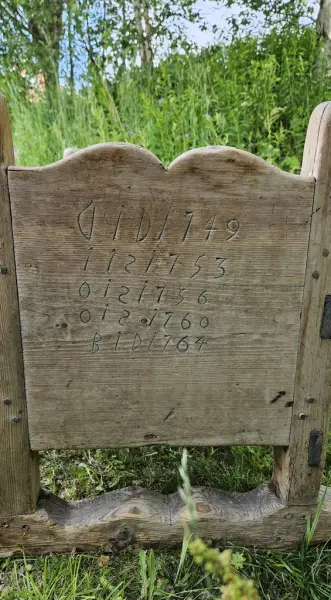 GID1749
IIS1753
OIS1756
OIS1760
BID1764